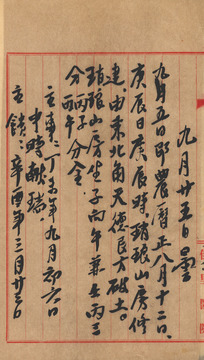 九月廿五日 星
九月五日即農曆正八月十二日、
庚辰日庚辰時、琅山房修
建、由東北角天德艮方破土。
琅山房坐子向午兼丑丙三
分丙子 分金
主事：丁未年九月初六日
申時
主饋：辛酉年三月廿三日